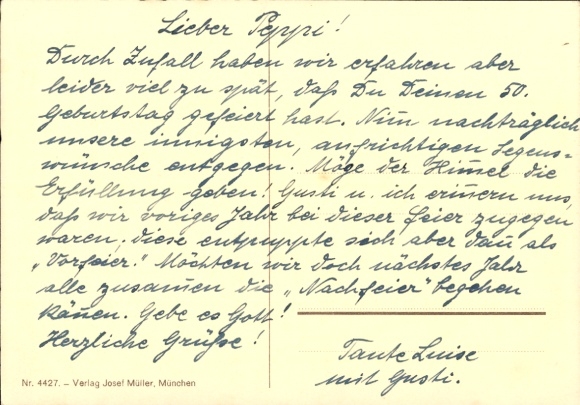 Lieber Peppi!
Durch Zufall haben wir erfahren aber
leider viel zu spät, daß Du Deinen 50.
Geburtstag gefeiert hast. Nim̄ nachträglich
unsere innigsten, aufrichtigen Segens-
wünsche entgegen. Möge der Him̄el die
Erfüllung geben! Gusti u. ich erin̄ern uns,
daß wir voriges Jahr bei dieser Feier zugegen
waren; diese entpuppte sich aber dan̄ als
„Vorfeier." Möchten wir doch nächstes Jahr
alle zusam̄en die „Nachfeier" begehen
kön̄en. Gebe es Gott!
Herzliche Grüße!
Tante Luise
mit Gusti.
Nr. 4427. – Verlag Josef Müller, München